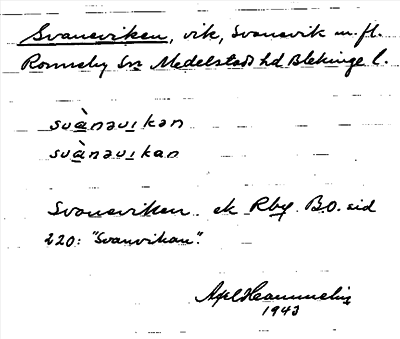 Svaneviken, vik, Svanevik m. fl.
Ronneby Sn Medelstads hd Blekinge l.
svànəvıkən
svànəvıkan
Svaneviken ek Rby. B.O. sid
220: "Svanvikan".
Axel
1943